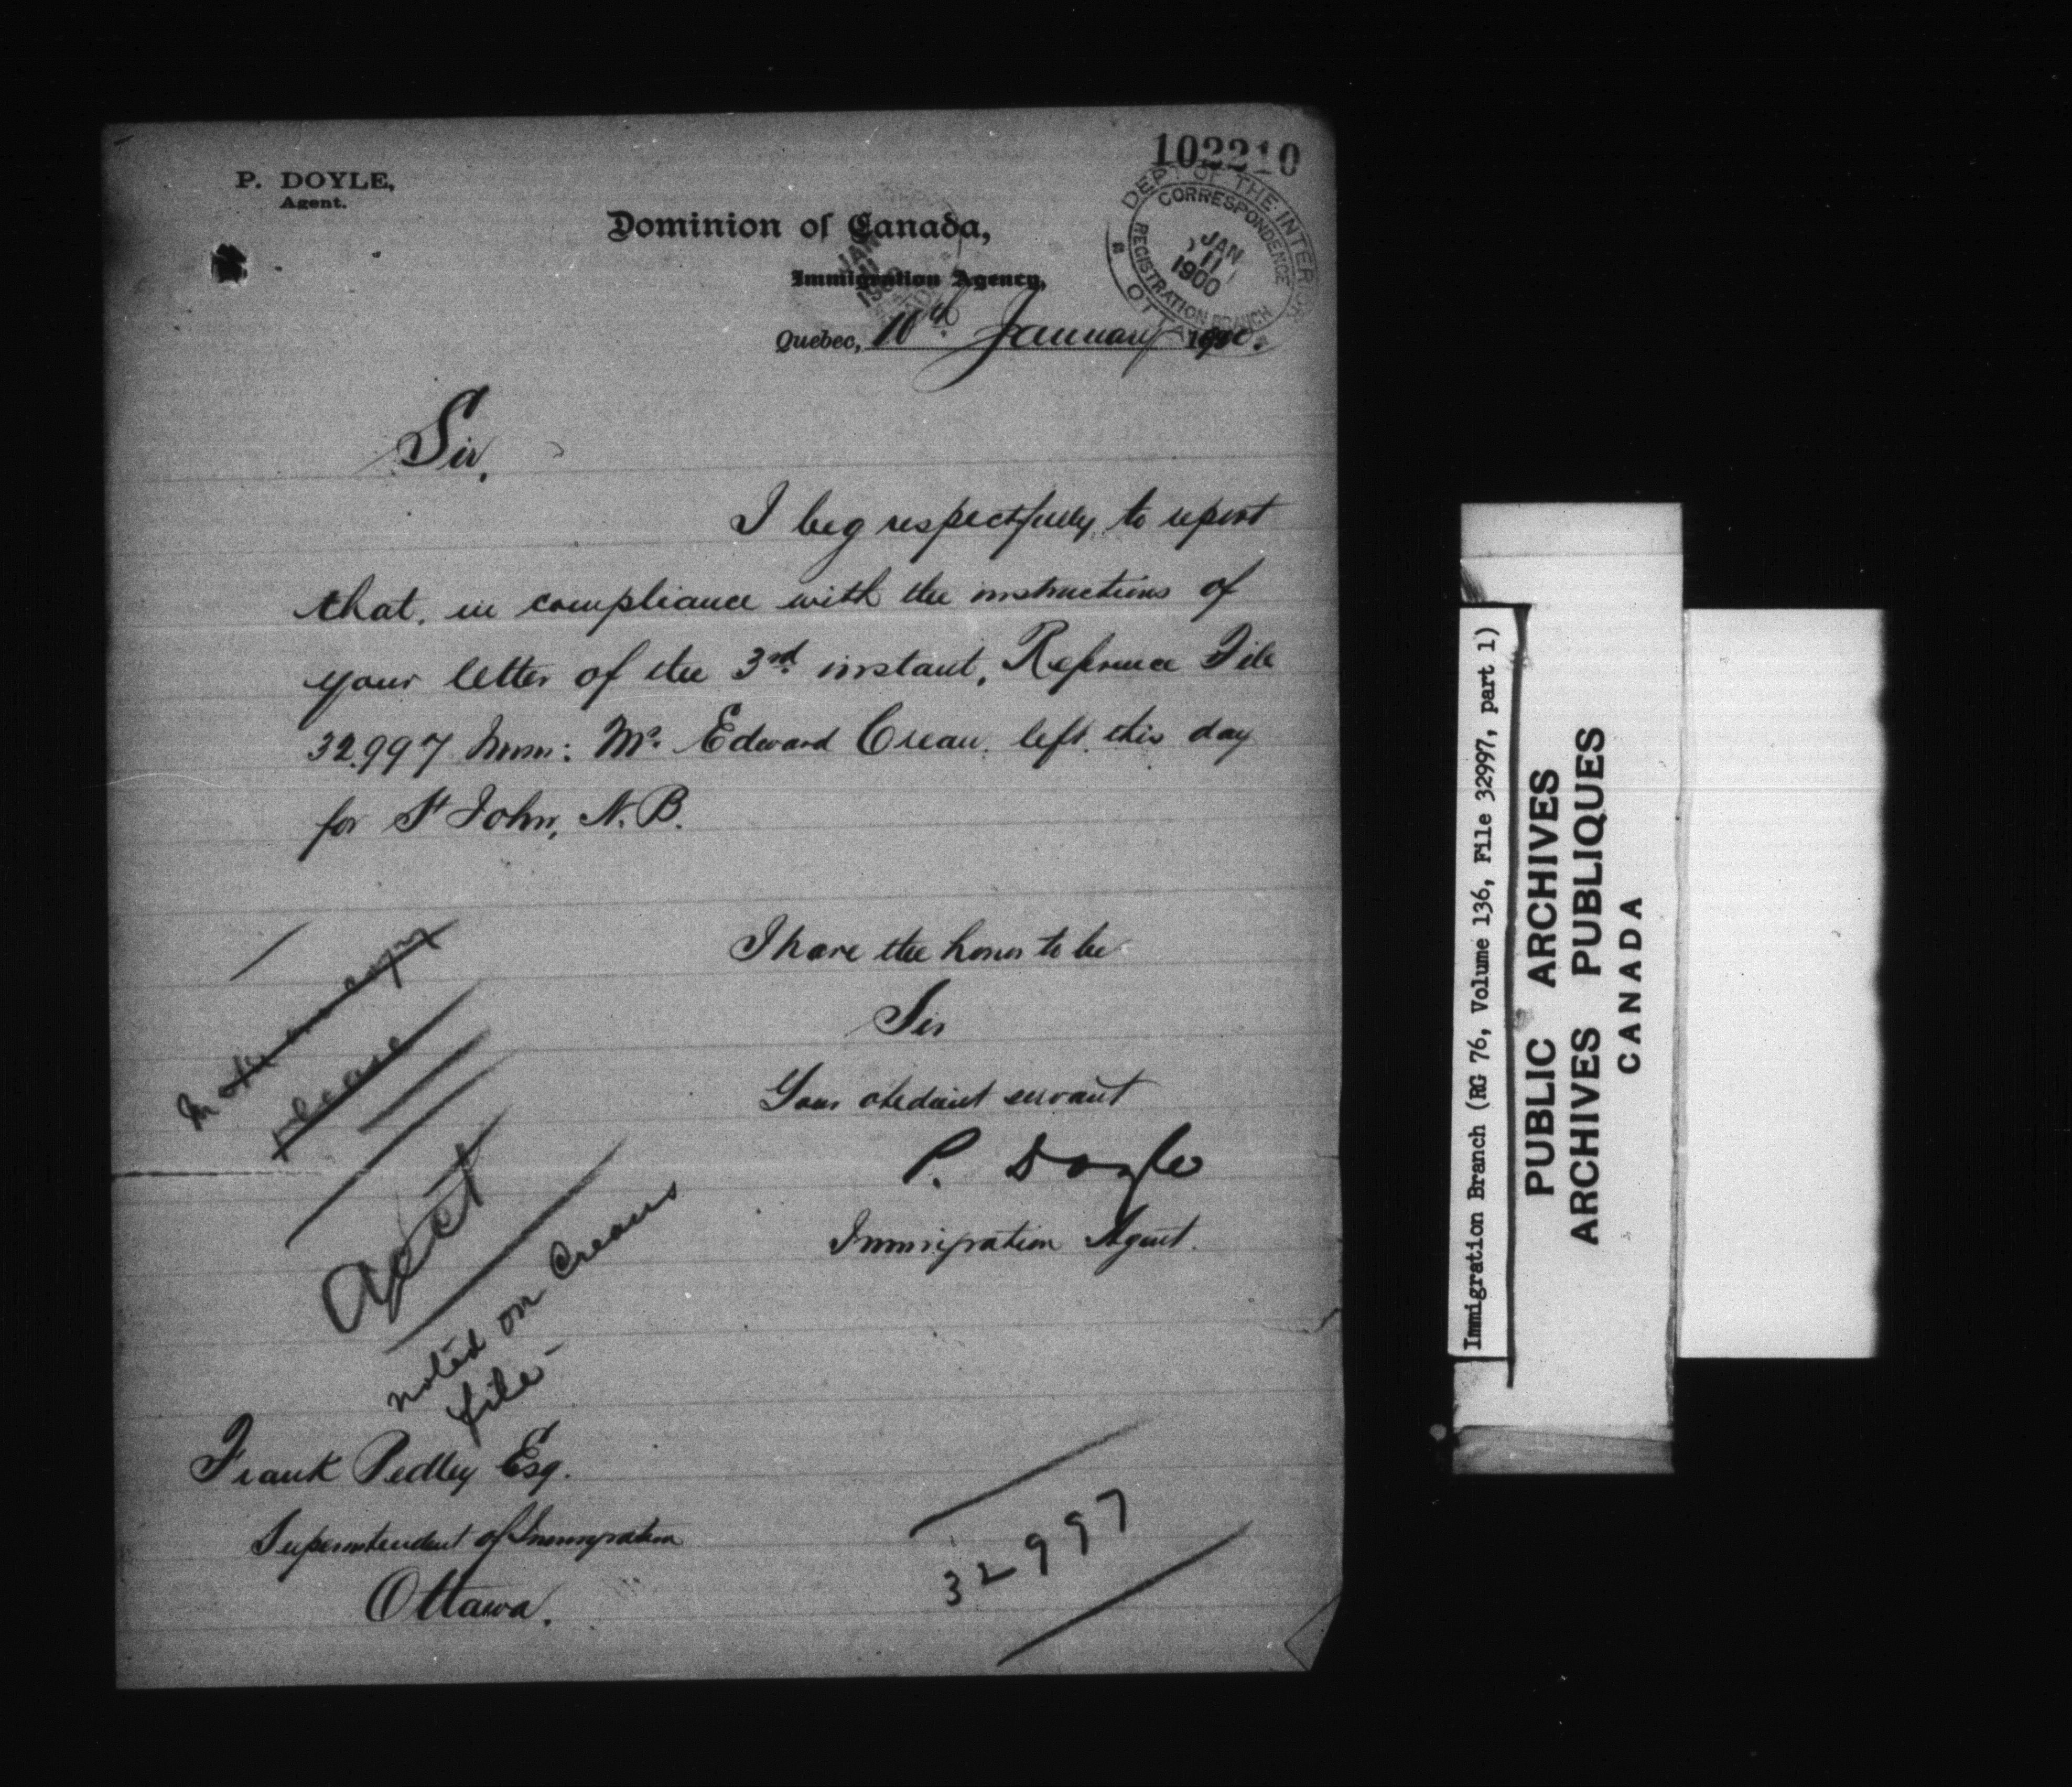 102210
P. DOYLE,
Agent.
DEPT OF THE INTERIOR
CORRESPONDENCE
JAN
11
1900
REGISTRATION BRANCH
OTTAWA
Dominion of Canada,
Immigration Agency,
Quebec, 10th January 1900.
Sir,
I beg respectfully, to report
that, in compliance with the instructions of
your letter of the 3rd instant, Reference File
32.997 Imm: Mr. Edward Crean left this day
for St John, N.B.
I have the honor to be
Sir
Your obedient servant
P. Doyle
Immigration Agent.
please
noted on Creans
file
Frank Pedley Esq.
Superintendent of Immigration
Ottawa.
32997
Immigration Branch (RG 76, Volume 136, File 32997, part 1)
PUBLIC ARCHIVES
ARCHIVES PUBLIQUES
CANADA